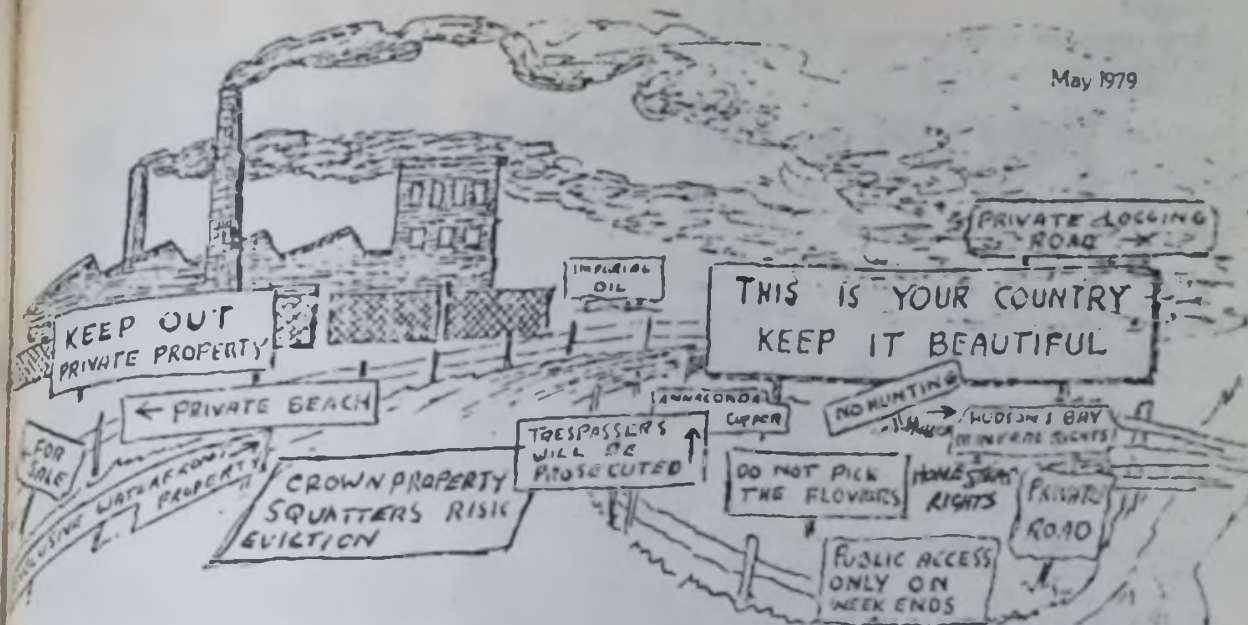 May 1979
PRIVATE LOGGING
ROAD
IMPERIAL
OIL
THIS IS YOUR COUNTRY
KEEP IT BEAUTIFUL
KEEP OUT
PRIVATE PROPERTY
← PRIVATE BEACH
ANNACONDA
COPPER
NO HUNTING
HUDSON'S BAY
MINERAL RIGHTS
FOR
SALE
EXCLUSIVE WATERFRONT
PROPERTY
CROWN PROPERTY
SQUATTERS RISK
EVICTION
TRESPASSERS
WILL BE
PROSECUTED
DO NOT PICK
THE FLOWERS
HOMESTEAD
RIGHTS
PRIVATE
ROAD
PUBLIC ACCESS
ONLY ON
WEEK ENDS